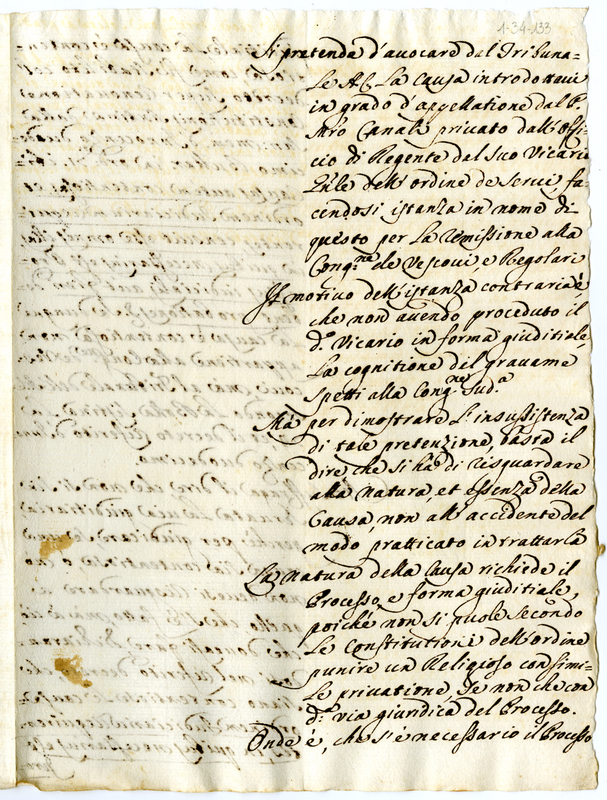 1-34-133
Si pretende d'avocare dal Tribuna=
le AC. La Causa introdottavi
in grado d'appellatione dal P.
Mro Canali privato dall'Offi
cio di Regente dal suo Vicario
Gnle dell'ordine de Servi, fa,
cendosi istanza in nome di
questo per La remissione alla
Cong.ne de Vescovi, e Regolari
Il motivo dell'istanza contraria è
che non avendo proceduto il
d.o Vicario in forma giuditiale
La cognitione del gravame
spetti alla Cong.ne sud.a
Ma per dimostrare L'insussistenza
di tale pretenzione, basta il
dire, che si ha di risguardare
alla natura, et essenza della
Causa, non all'accidente del
modo pratticato in trattarla
La natura della Causa richiede il
Processo, e forma giuditiale,
poiche non si puole secondo
Le Constitutioni dell'ordine
punire un Religioso con simi=
le privatione, se non che con
d.a via giuridica del Processo.
Onde è, che s'è necessario il Processo